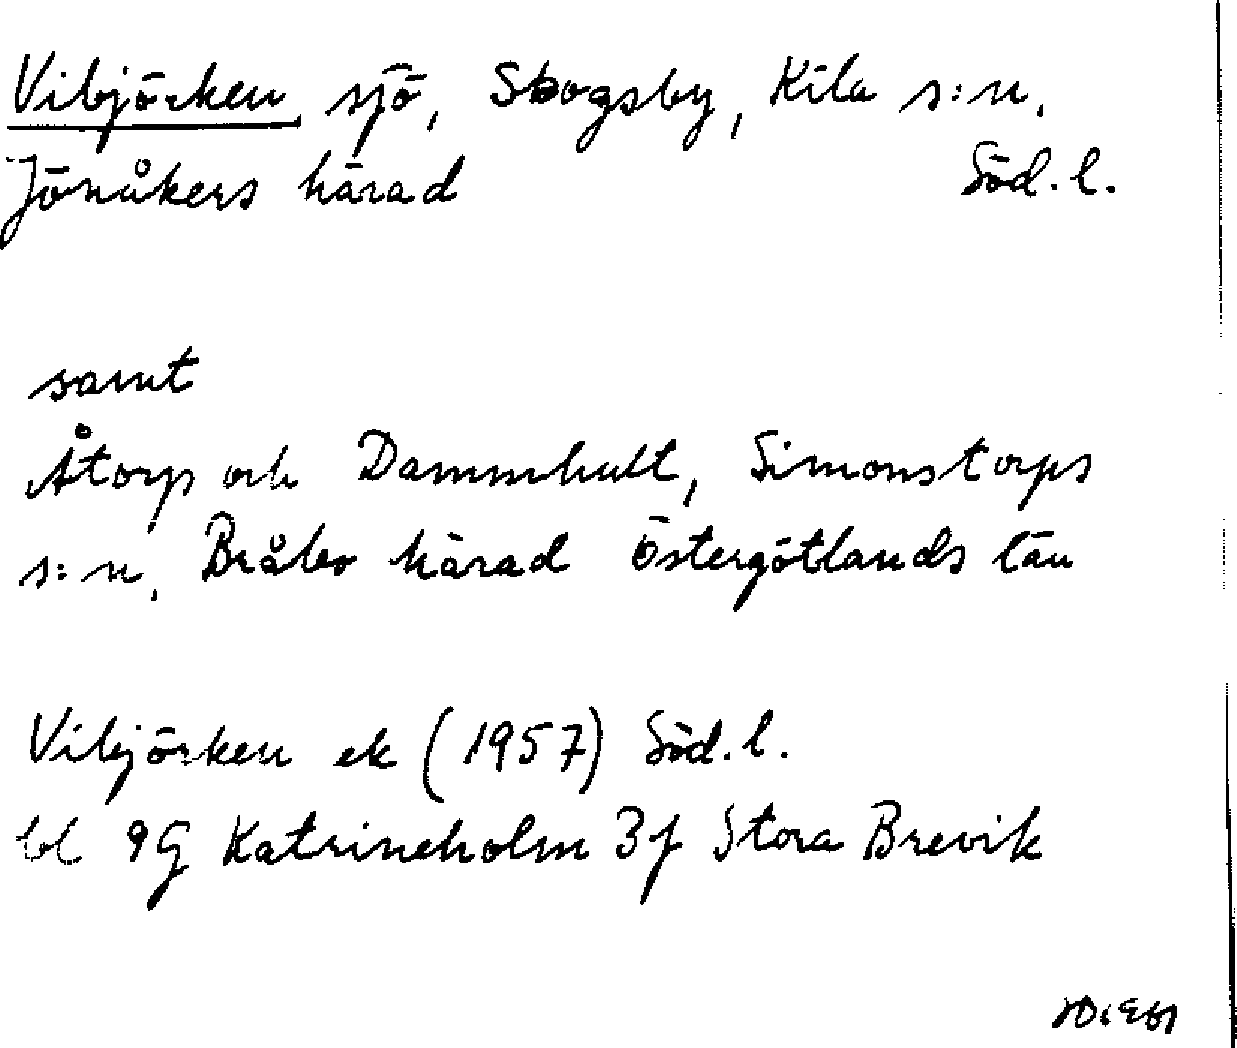 Vibjörken, sjö, Skogsby, Kila s:n,
Jönåkers härad Söd. l.
samt
Åtorp och Dammhult, Simonstorps
s:n, Bråbo härad Östergötlands län
Vibjörken ek (1957) Söd. l.
bl 9G Katrineholm 3f Stora Brevik